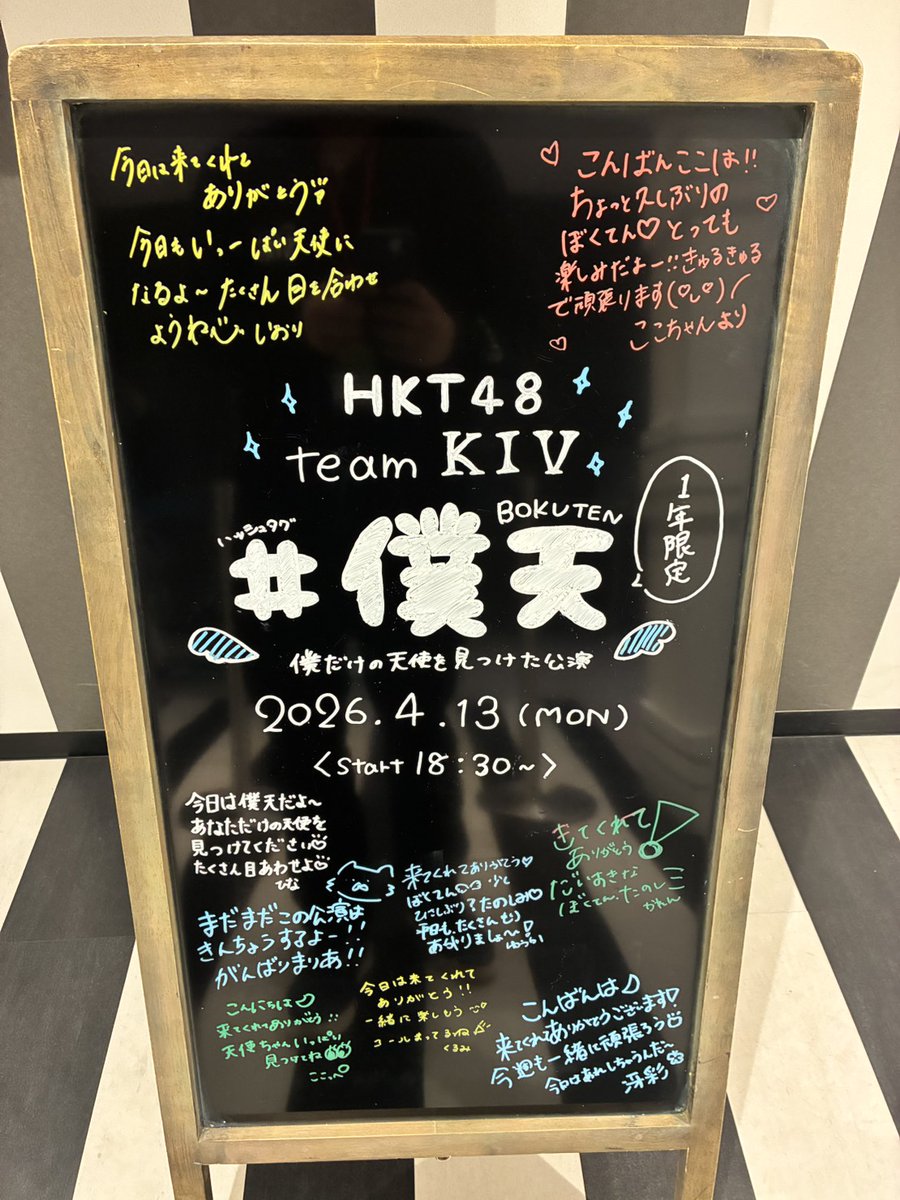 今日は来てくれて
ありがとうゔ
今日もいっーぱい天使に
なるよ～たくさん目を合わせ
ようね しおり
こんばんここは!!
ちょっと久しぶりの
ぼくてん♡とっても
楽しみだよー!!きゅるきゅる
で頑張ります
ここちゃんより
HKT48
team KIV
ハッシュタグ
BOKUTEN
#僕天
1年限定
僕だけの天使を見つけた公演
2026.4.13(MON)
<Start 18:30~>
今日は僕天だよ～
あなただけの天使を
見つけてください
たくさん目あわせよ
ひな
きてくれて
ありがとう
だいすきな
ぼくてん、たのしむ
かれん
来てくれてありがとう♡
ぼくてん
ひさしぶり?たのしみ♡
平日も、たくさん
お終りましょ～
まだまだこの公演は
きんちょうするよー!!
がんばりまりあ!!
こんにちは
来てくれてありがとう!!
天使ちゃんいっぱい
見つけてね
ここっぺ
今日は来てくれて
ありがとう!!
一緒に楽しもう
コールまってるね
くるみ
こんばんは♪
来てくれありがとうございます♡
今週も一緒に頑張ろう
今日はあれしちゃうんだ～
冴彩